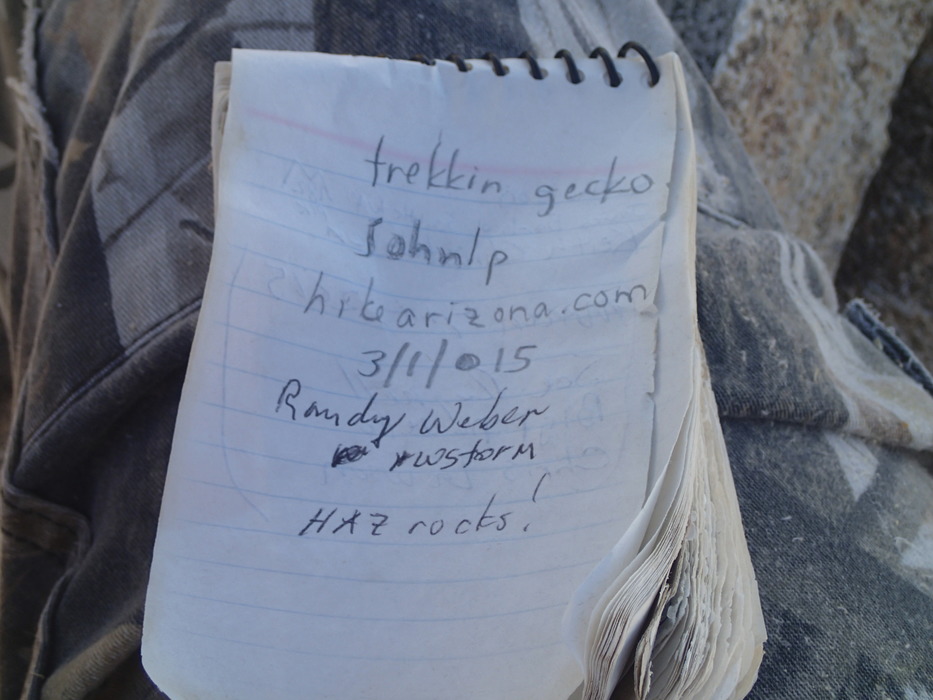 trekkin gecko
Johnlp
hikearizona.com
3/1/015
Randy Weber
rwstorm
HAZ rocks!